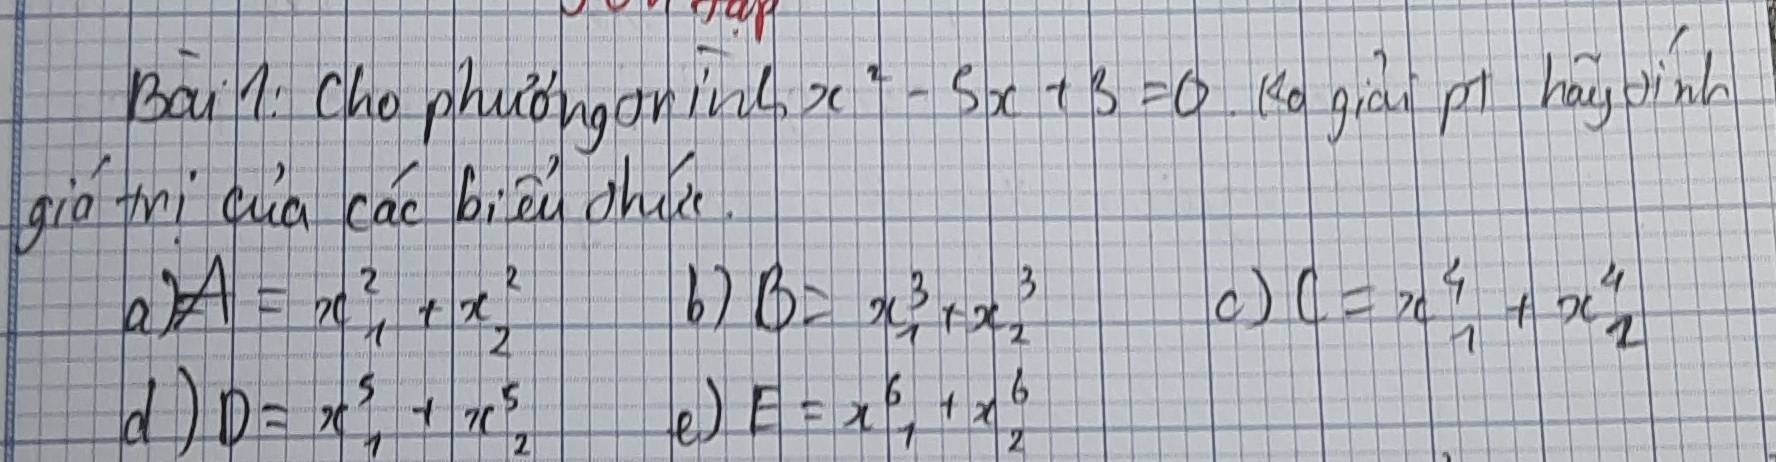 ôn tập
Bài 1: Cho phương trình x² - 5x + 3 = 0. Ko giải pt hãy tính
giá trị của các biểu thức.
a) A = x₁² + x₂² b) B = x₁³ + x₂³ c) C = x₁⁴ + x₂⁴
d) D = x₁⁵ + x₂⁵ e) E = x₁⁶ + x₂⁶